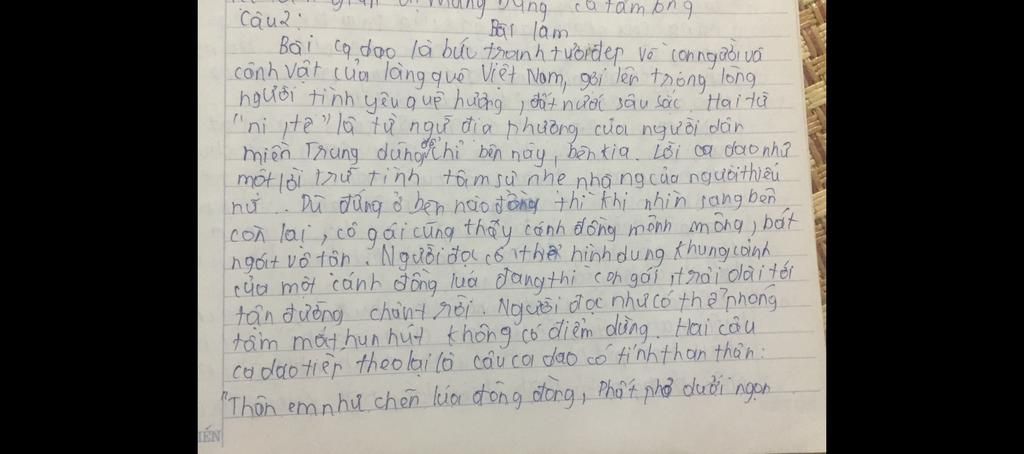 mang dung cả tấm lòng
Câu2:
Bài làm
Bài ca dao là bức tranh tươi đẹp về con người và
cảnh vật của làng quê Việt Nam, gợi lên trong lòng
người tình yêu quê hương, đất nước sâu sắc. Hai từ
"ni, tê" là từ ngữ địa phương của người dân
miền Trung dùng để chỉ bên này, bên kia. Lời ca dao như
một lời trữ tình tâm sự nhẹ nhàng của người thiếu
nữ. Dù đứng ở bên nào đồng thì khi nhìn sang bên
còn lại, cô gái cũng thấy cánh đồng mênh mông, bát
ngát vô tận. Người đọc có thể hình dung khung cảnh
của một cánh đồng lúa đang thì con gái, trải dài tới
tận đường chân trời. Người đọc như có thể phóng
tầm mắt hun hút không có điểm dừng. Hai câu
ca dao tiếp theo lại là câu ca dao có tính than thân:
"Thân em như chẽn lúa đòng đòng, Phất phơ dưới ngọn
IẾN